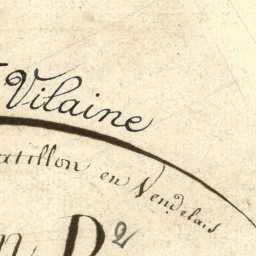 Vilaine
atillon en Vendelais
n D 2